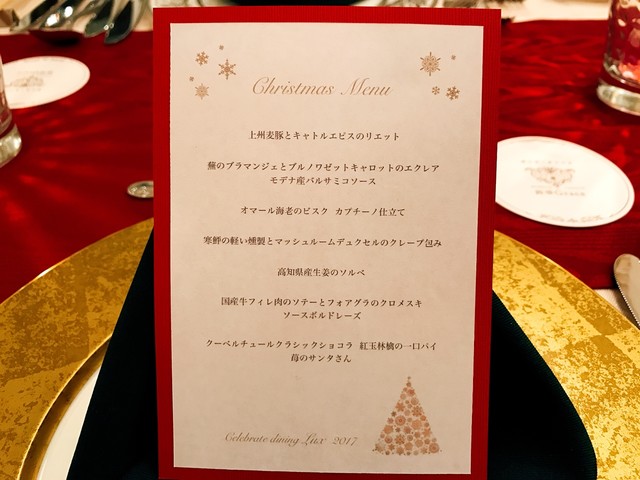 Christmas Menu
上州麦豚とキャトルエピスのリエット
蕪のブラマンジェとブルノワゼットキャロットのエクレア
モデナ産バルサミコソース
オマール海老のビスク カプチーノ仕立て
寒鰤の軽い燻製とマッシュルームデュクセルのクレープ包み
高知県産生姜のソルベ
国産牛フィレ肉のソテーとフォアグラのクロメスキ
ソースボルドレーズ
クーベルチュールクラシックショコラ 紅玉林檎の一口パイ
苺のサンタさん
Celebrate dining Lux 2017